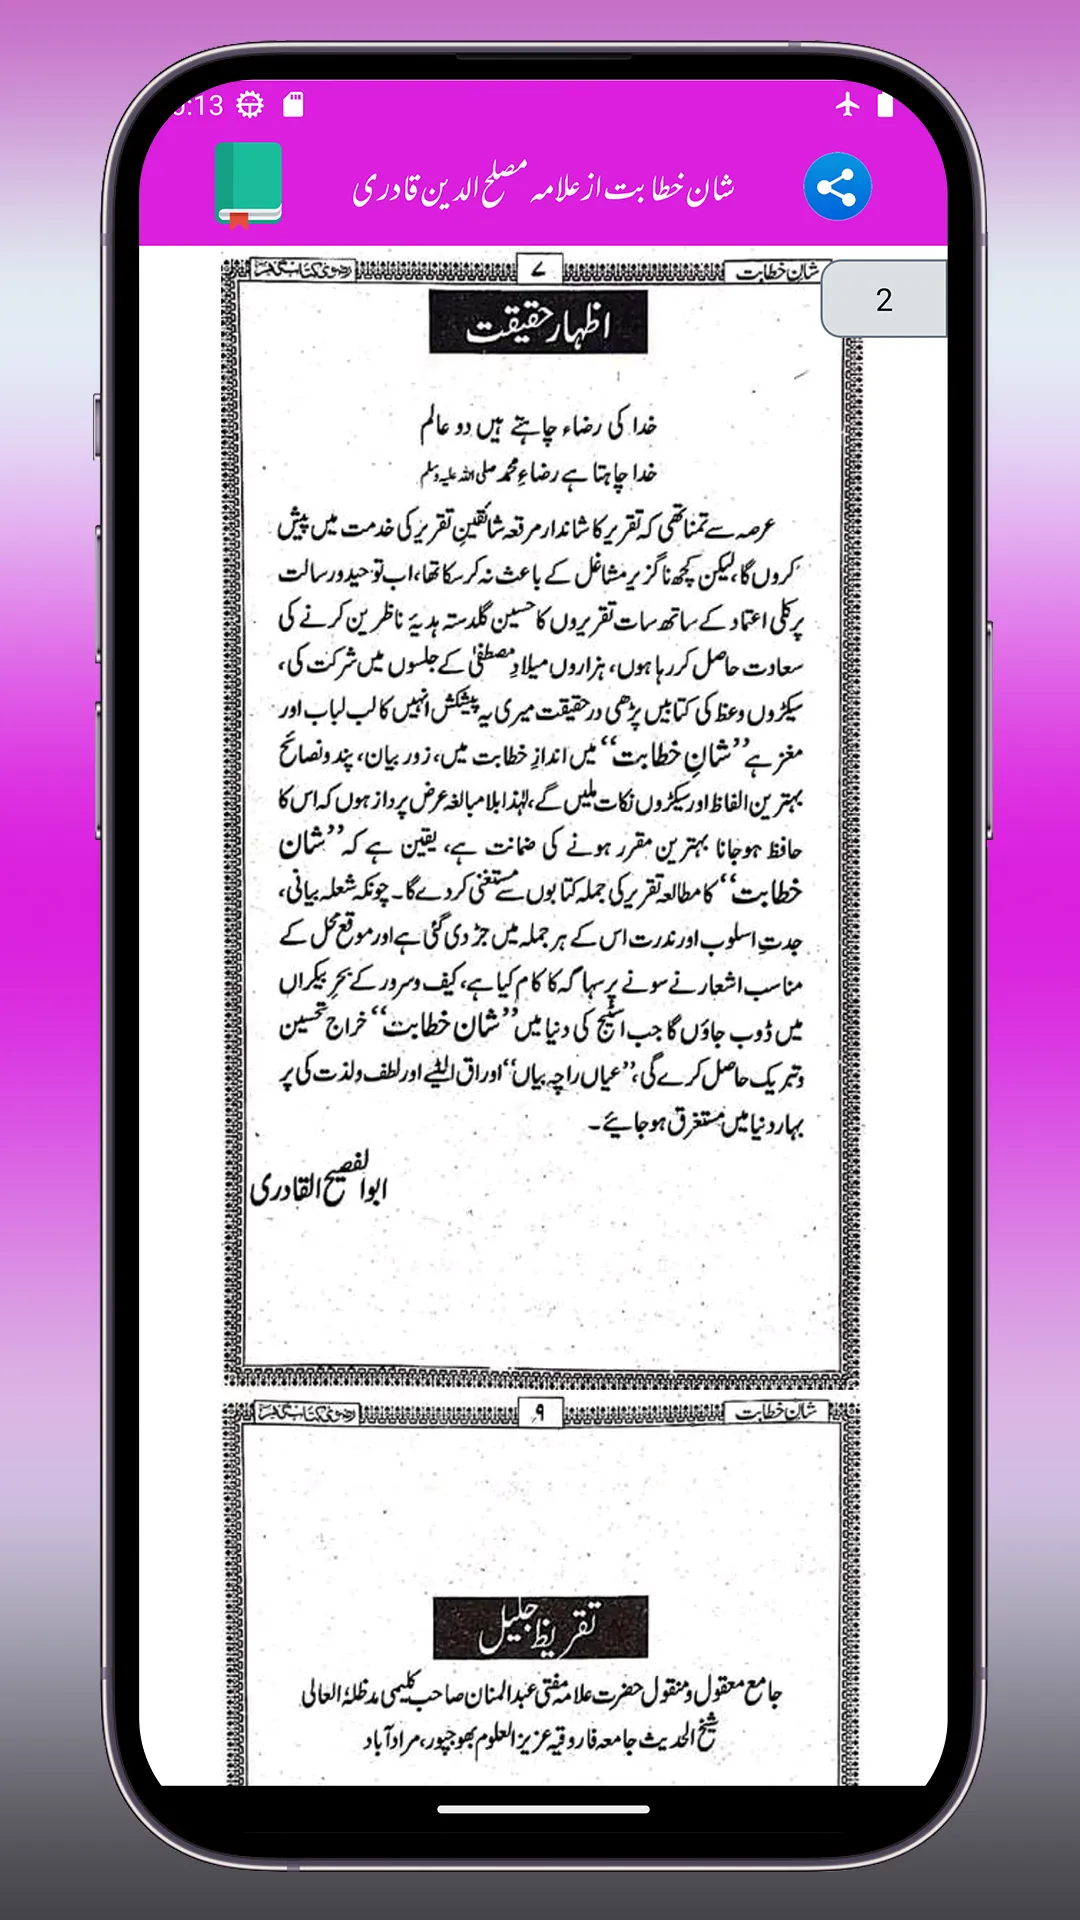 :13
شان خطابت از علامہ مصلح الدین قادری
شان خطابت
۷
رضوی کتاب گھر
2
اظہار حقیقت
خدا کی رضاء چاہتے ہیں دو عالم
خدا چاہتا ہے رضاءِ محمد صلی اللہ علیہ وسلم
عرصہ سے تمنا تھی کہ تقریر کا شاندار مرقعہ شائقینِ تقریر کی خدمت میں پیش
کروں گا، لیکن کچھ ناگزیر مشاغل کے باعث نہ کر سکا تھا، اب توحید و رسالت
پر کلی اعتماد کے ساتھ سات تقریروں کا حسین گلدستہ ہدیۂ ناظرین کرنے کی
سعادت حاصل کر رہا ہوں، ہزاروں میلادِ مصطفیٰ کے جلسوں میں شرکت کی،
سیکڑوں وعظ کی کتابیں پڑھی در حقیقت میری یہ پیشکش انہیں کا لب لباب اور
مغز ہے ’’شانِ خطابت‘‘ میں اندازِ خطابت میں، زور بیان، پند و نصائح
بہترین الفاظ اور سیکڑوں نکات ملیں گے، لہٰذا بلا مبالغہ عرض پرداز ہوں کہ اس کا
حافظ ہو جانا بہترین مقرر ہونے کی ضمانت ہے، یقین ہے کہ ’’شان
خطابت‘‘ کا مطالعہ تقریر کی جملہ کتابوں سے مستغنی کر دے گا۔ چونکہ شعلہ بیانی،
جدتِ اسلوب اور ندرت اس کے ہر جملہ میں جڑ دی گئی ہے اور موقع محل کے
مناسب اشعار نے سونے پر سہاگہ کا کام کیا ہے، کیف و سرور کے بحرِ بیکراں
میں ڈوب جاؤں گا جب اسٹیج کی دنیا میں ’’شان خطابت‘‘ خراج تحسین
و تبریک حاصل کرے گی، ’’عیاں راچہ بیاں‘‘ اوراق الٹیے اور لطف و لذت کی پر
بہار دنیا میں مستغرق ہو جائیے۔
ابو الفصیح القادری
شان خطابت
۹
رضوی کتاب گھر
تقریظ جلیل
جامع معقول و منقول حضرت علامہ مفتی عبد المنان صاحب کلیمی مدظلہٗ العالی
شیخ الحدیث جامعہ فاروقیہ عزیز العلوم بھوجپور، مراد آباد